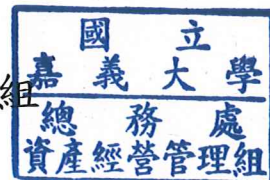 國立
嘉義大學
總務處
資產經營管理組
組